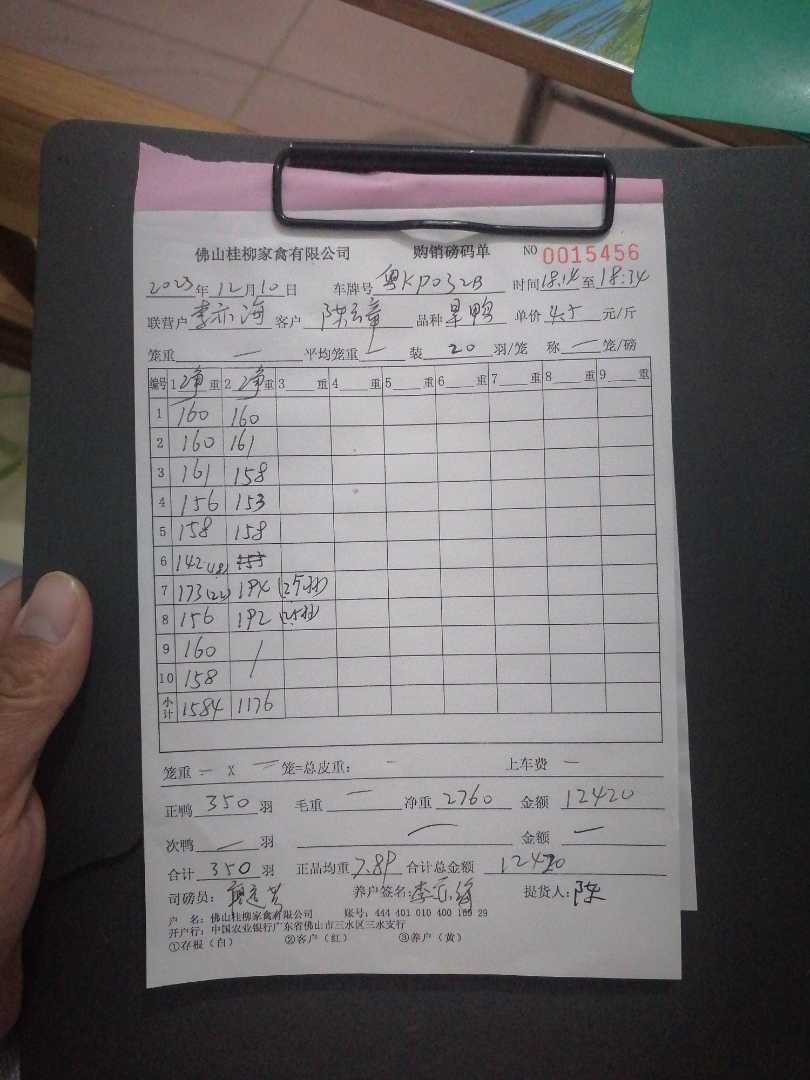 佛山桂柳家禽有限公司 购销磅码单 NO 0015456
2023年12月10日 车牌号 粤KP032B 时间18:14至18:34
联营户 李亦海 客户 陈云章 品种 旱鸭 单价 4.5 元/斤
笼重 — 平均笼重 / 装 20 羽/笼 称 — 笼/磅
编号 1 净 重 2 净 重 3 重 4 重 5 重 6 重 7 重 8 重 9 重
1 160 160
2 160 161
3 161 158
4 156 153
5 158 158
6 142(18)
7 173(22) (25羽)
8 156 192 (25羽)
9 160 /
10 158
小计 1584 1176
笼重 — X — 笼=总皮重: — 上车费 —
正鸭 350 羽 毛重 — 净重 2760 金额 12420
次鸭 — 羽 — 金额 —
合计 350 羽 正品均重 7.89 合计总金额 12420
司磅员: 养户签名: 李亦海 提货人: 陈
户 名: 佛山桂柳家禽有限公司 账号: 444 401 010 400 169 29
开户行: 中国农业银行广东省佛山市三水区三水支行
①存根(白) ②客户(红) ③养户(黄)